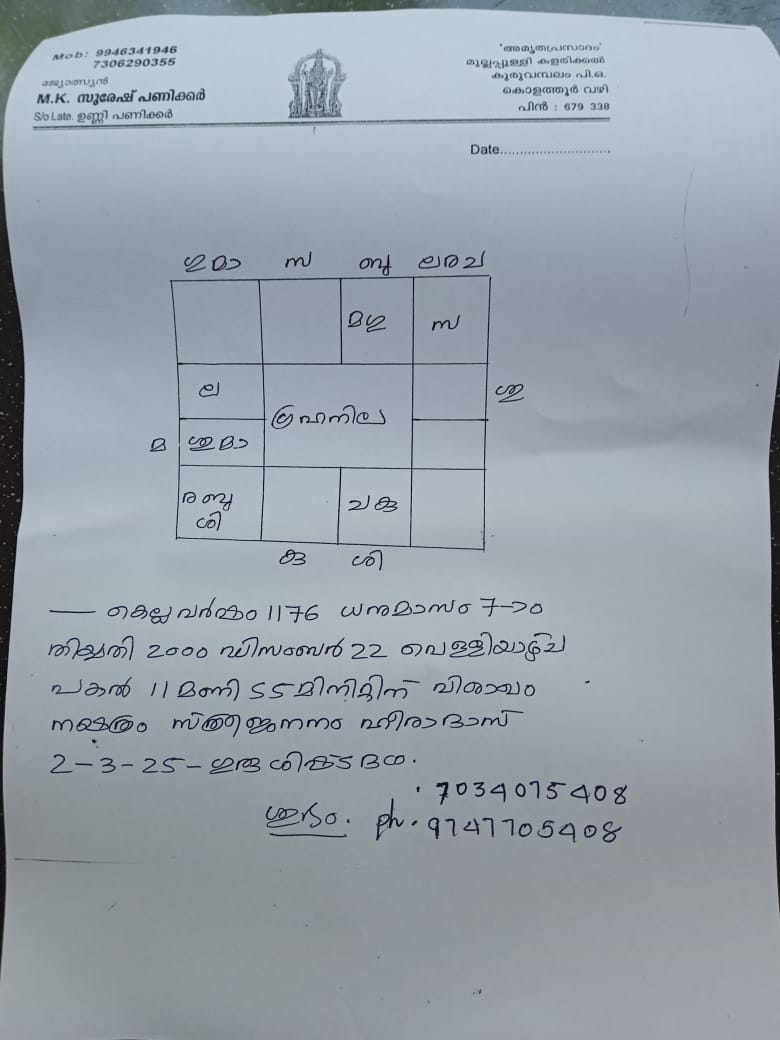 Mob: 9946341946
7306290355
ജ്യോത്സ്യൻ
M.K. സുരേഷ് പണിക്കർ
S/o Late. ഉണ്ണി പണിക്കർ
'അമൃതപ്രസാദം'
മുല്ലപ്പള്ളി കളരിക്കൽ
കുരുവമ്പലം പി.ഒ.
കൊളത്തൂർ വഴി
പിൻ : 679 338
Date............................
ഗുമാ സ ബു ലരച
മഗു സ
ല
ശു
ഗ്രഹനില
മ ശുമാ
ര ബു
ശി
ചകു
കു ശി
കൊല്ലവർഷം 1176 ധനുമാസം 7-ാം
തിയ്യതി 2000 ഡിസംബർ 22 വെള്ളിയാഴ്ച
പകൽ 11 മണി 55 മിനിറ്റിന് വിശാഖം
നക്ഷത്രം സ്ത്രീജനനം ഹീരാദാസ്
2-3-25-ഗുരു ശിഷ്ടദശ.
ശുഭം. : 7034075408
ph. 9747705408